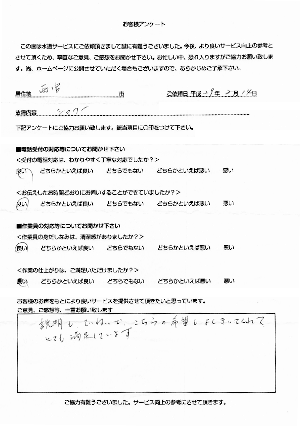 お客様アンケート
この度は水道サービスにご依頼頂きまして誠に有難うございました。今後、より良いサービス向上の参考と
させて頂くため、率直なご意見、ご感想をお聞かせ下さい。お忙しい中、恐れ入りますがご協力お願い致しま
す。尚、ホームページに公開させていただく場合もございますので、あらかじめご了承下さい。
居住地
市
ご依頼日 平成
依頼内容
下記アンケートにご協力お願い致します。該当項目に○印をつけて下さい。
■電話受付の対応等についてお聞かせ下さい
<受付の電話対応は、わかりやすく丁寧な対応でしたか？>
良い どちらかといえば良い どちらでもない どちらかといえば悪い 悪い
<お伝えしたお時間どおりにお伺いすることができていましたか？>
良い どちらかといえば良い どちらでもない どちらかといえば悪い 悪い
■作業員の対応等についてお聞かせ下さい
<作業員の身だしなみは、清潔感がありましたか？>
良い どちらかといえば良い どちらでもない どちらかといえば悪い 悪い
<作業の仕上がりは、ご満足いただけましたか？>
良い どちらかといえば良い どちらでもない どちらかといえば悪い 悪い
お客様のお声をもとにより良いサービスを提供させて頂きたいと思っています。
ご意見、ご感想等、一言お願い致します
説明もていねいで、こちらの希望もよくきいてくれて
とても満足しています
ご協力有難うございました。サービス向上の参考にさせて頂きます。